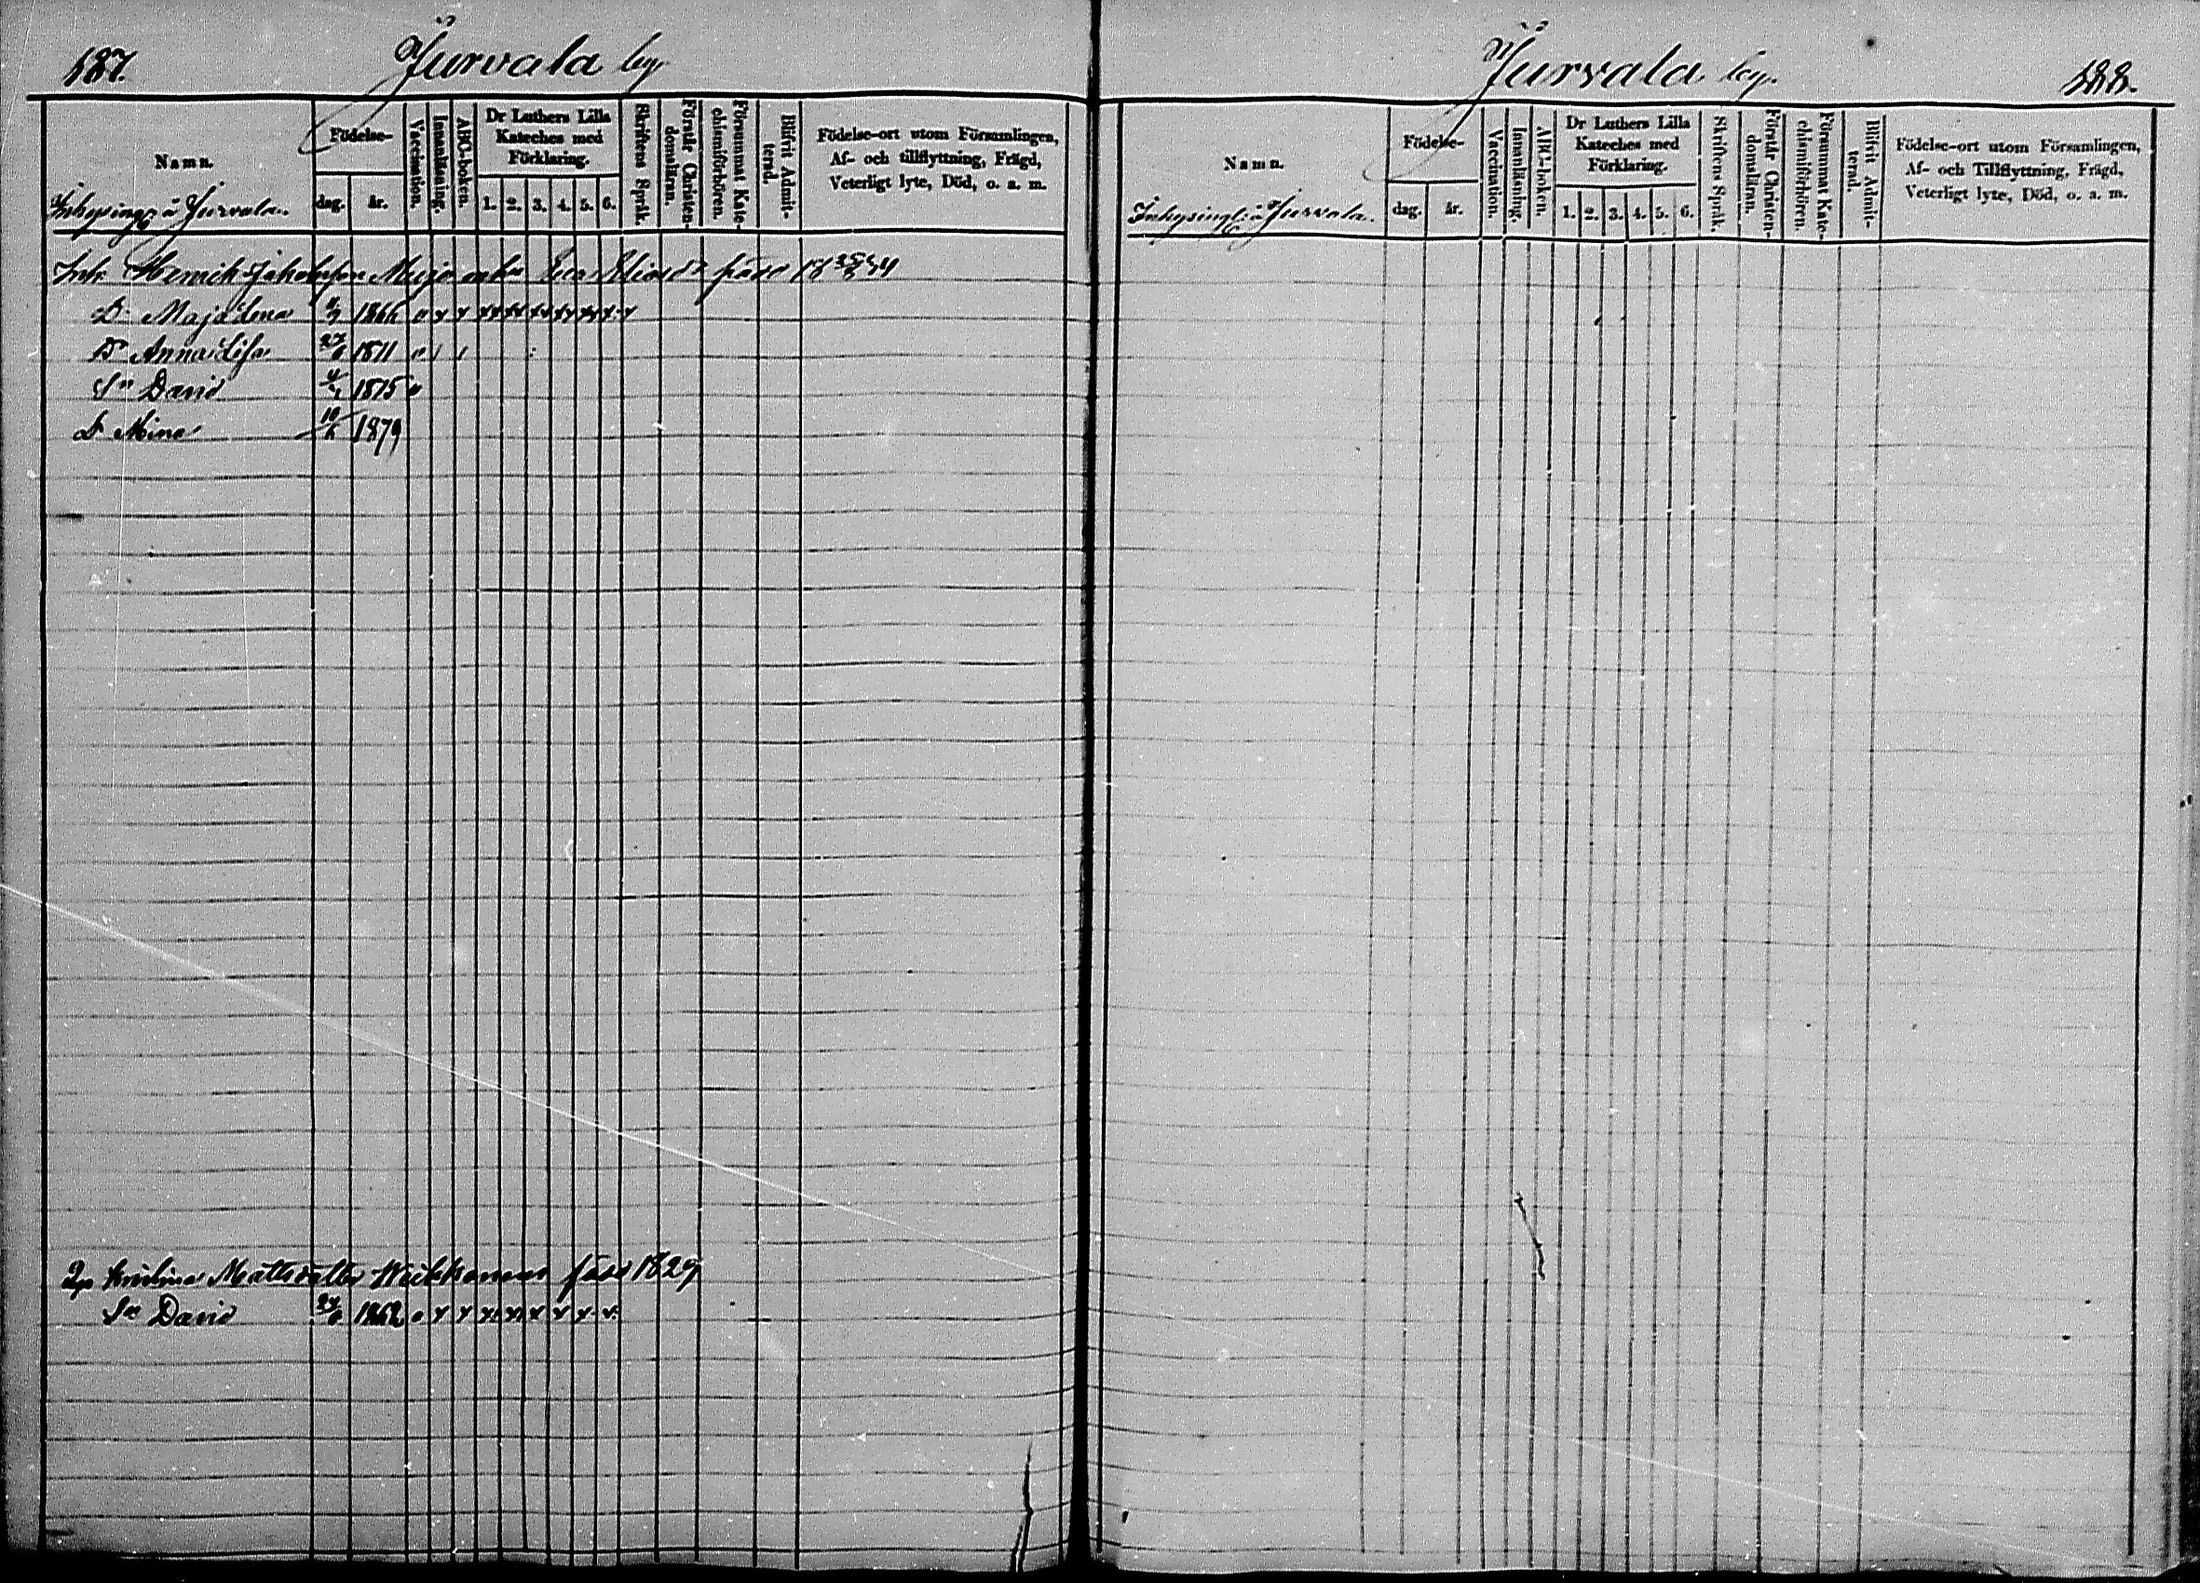 187.
Jurvala by
Namn.
Födelse-
dag.
år.
Vaccination.
Innanläsning.
ABC-boken.
Dr Luthers Lilla
Kateches med
Förklaring.
1. 2. 3. 4. 5. 6.
Skriftens Språk.
Förstår Christen-
domsläran.
Försummat Kate-
chismiförhören.
Blifvit Admit-
terad.
Födelse-ort utom Församlingen,
Af- och tillflyttning, Frägd,
Veterligt lyte, Död, o. a. m.
Inhysingar i Jurvala.
Inh. Henrik Jakobsson
D. Maja Lena 1866
D. Anna Lisa 1871
Sn David 1875
D. Mina 1879
Kristina Mattsdotter född 1829
Sn David 1862
Jurvala by.
188.
Namn.
Födelse-
dag.
år.
Vaccination.
Innanläsning.
ABC-boken.
Dr Luthers Lilla
Kateches med
Förklaring.
1. 2. 3. 4. 5. 6.
Skriftens Språk.
Förstår Christen-
domsläran.
Försummat Kate-
chismiförhören.
Blifvit Admit-
terad.
Födelse-ort utom Församlingen,
Af- och Tillflyttning, Frägd,
Veterligt lyte, Död, o. a. m.
Inhysingar i Jurvala.